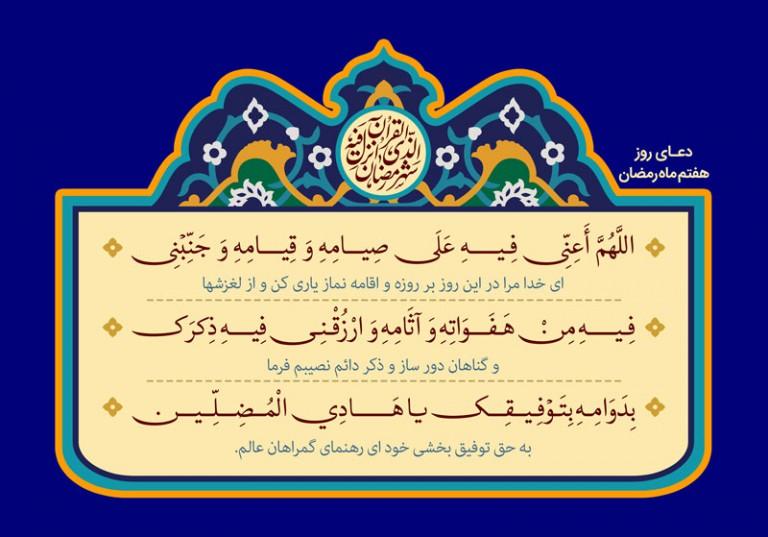 شهر رمضان الذی انزل فیه القرآن
دعای روز
هفتم ماه رمضان
اللَّهُمَّ أَعِنِّی فِیهِ عَلَی صِیامِهِ وَ قِیامِهِ وَ جَنِّبْنِی
ای خدا مرا در این روز بر روزه و اقامه نماز یاری کن و از لغزشها
فِیهِ مِنْ هَفَوَاتِهِ وَ آثَامِهِ وَ ارْزُقْنِی فِیهِ ذِکرَک
و گناهان دور ساز و ذکر دائم نصیبم فرما
بِدَوَامِهِ بِتَوْفِیقِک یا هَادِي الْمُضِلِّینَ
به حق توفیق بخشی خود ای رهنمای گمراهان عالم.